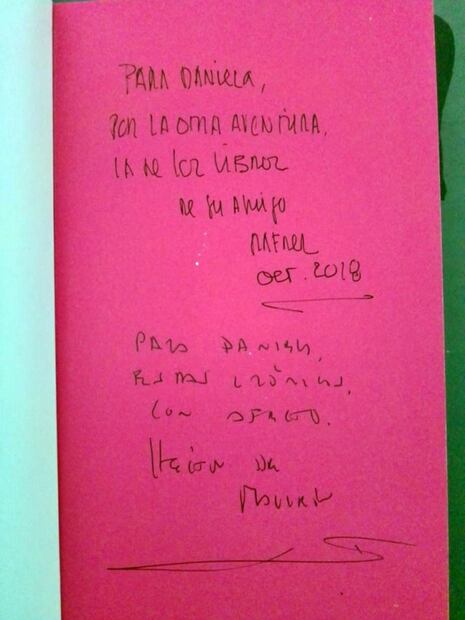 PARA DANIELA,
POR LA OTRA AVENTURA,
LA DE LOS LIBROS
DE SU AMIGO
RAFAEL
OCT. 2018
PARA DANIELA,
ESTAS CRÓNICAS,
CON AFECTO.
HÉCTOR DE
MAULEÓN